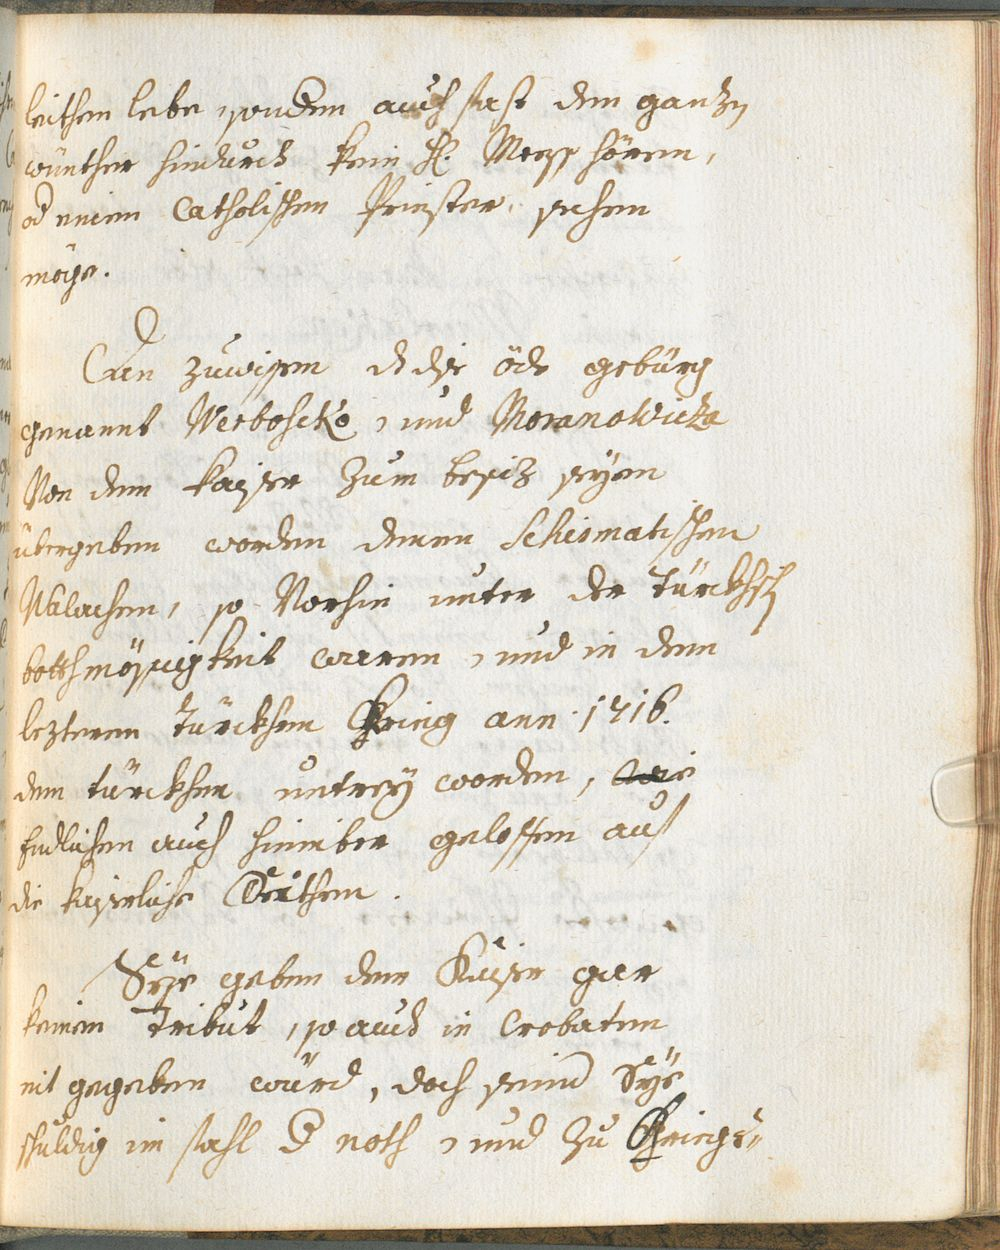 leithen lebe, sondern auch fast den gantzen
wünther hindurch kein H. Mess hören,
od einen Catholischen Priester sehen
möge.
zuwissen d dise öde gebürg
genannt Werboscko, und Moranowicza
Von dem kaiser zum besiz seyen
übergeben worden denen Schismatischen
Walachen, so Vorhin unter der Türckhisch
bottmössigkeit waren, und in dem
lezteren Türckhen Krieg ann. 1716.
dem türckhen untrey worden,
Endlichen auch hinüber geloffen auf
die kayserliche Seithen.
Dise geben dem Kaiser gar
keinen Tribut, so auch in Crobaten
nit gegeben würd, doch seind Sye
schuldig im fahl D noth, und zu Kriegs-